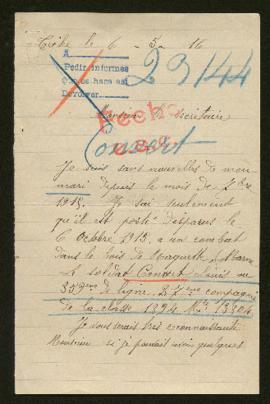 le 6 - 5 - 16
A
Pedir informes
Devolver
23144
Hecho
Monsieur le Secrétaire
Consort
Je suis sans nouvelles de mon
mari depuis le mois de 7bre
1915. Je sai seulement
qu'il est porté disparus le
6 Octobre 1915 a un combat
dans le bois de
Le soldat
de ligne 27eme compagnie
de la classe 1894 Mle
Je vous serait très reconnaissante
Monsieur si je pouvait avoir quelques